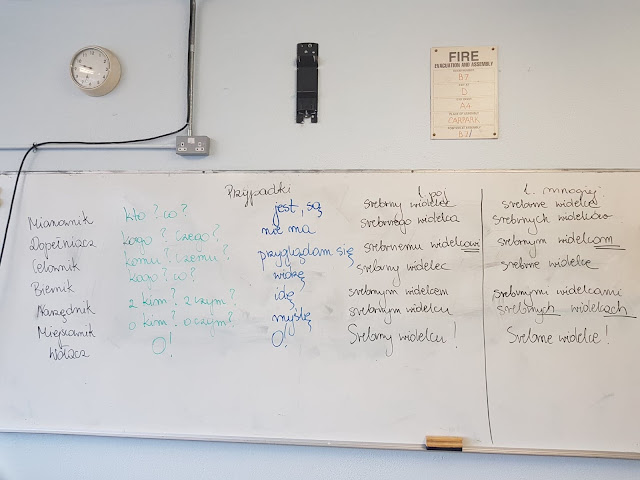 FIRE
EVACUATION AND ASSEMBLY
B7
D
A4
PLACE OF ASSEMBLY
CARPARK
B2/
Przypadki l. poj l. mnogiej
Mianownik kto? co? jest, są srebrny widelec srebrne widelce
Dopełniacz kogo? czego? nie ma srebrnego widelca srebrnych widelców
Celownik komu? czemu? przyglądam się srebrnemu widelcowi srebrnym widelcom
Biernik kogo? co? widzę srebrny widelec srebrne widelce
Narzędnik z kim? z czym? idę srebrnym widelcem srebrnymi widelcami
Miejscownik o kim? o czym? myślę srebrnym widelcu srebrnych widelcach
Wołacz O! O! Srebrny widelcu! Srebrne widelce!